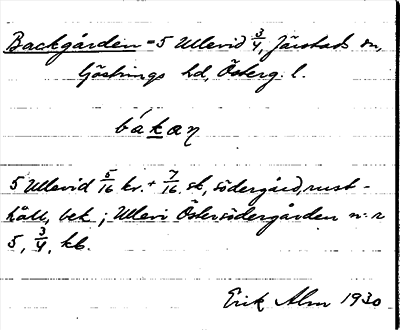 Backgården = 5 Ullevid 3/4, Järstads sn,
Göstrings hd, Österg. l.
bákæɳ
5 Ullevid 5/16 kr. + 7/16 sk, södergård, rust-
håll, bek; Ullevi Östersödergården n:r
5, 3/4, kb.
Erik Alm 1930